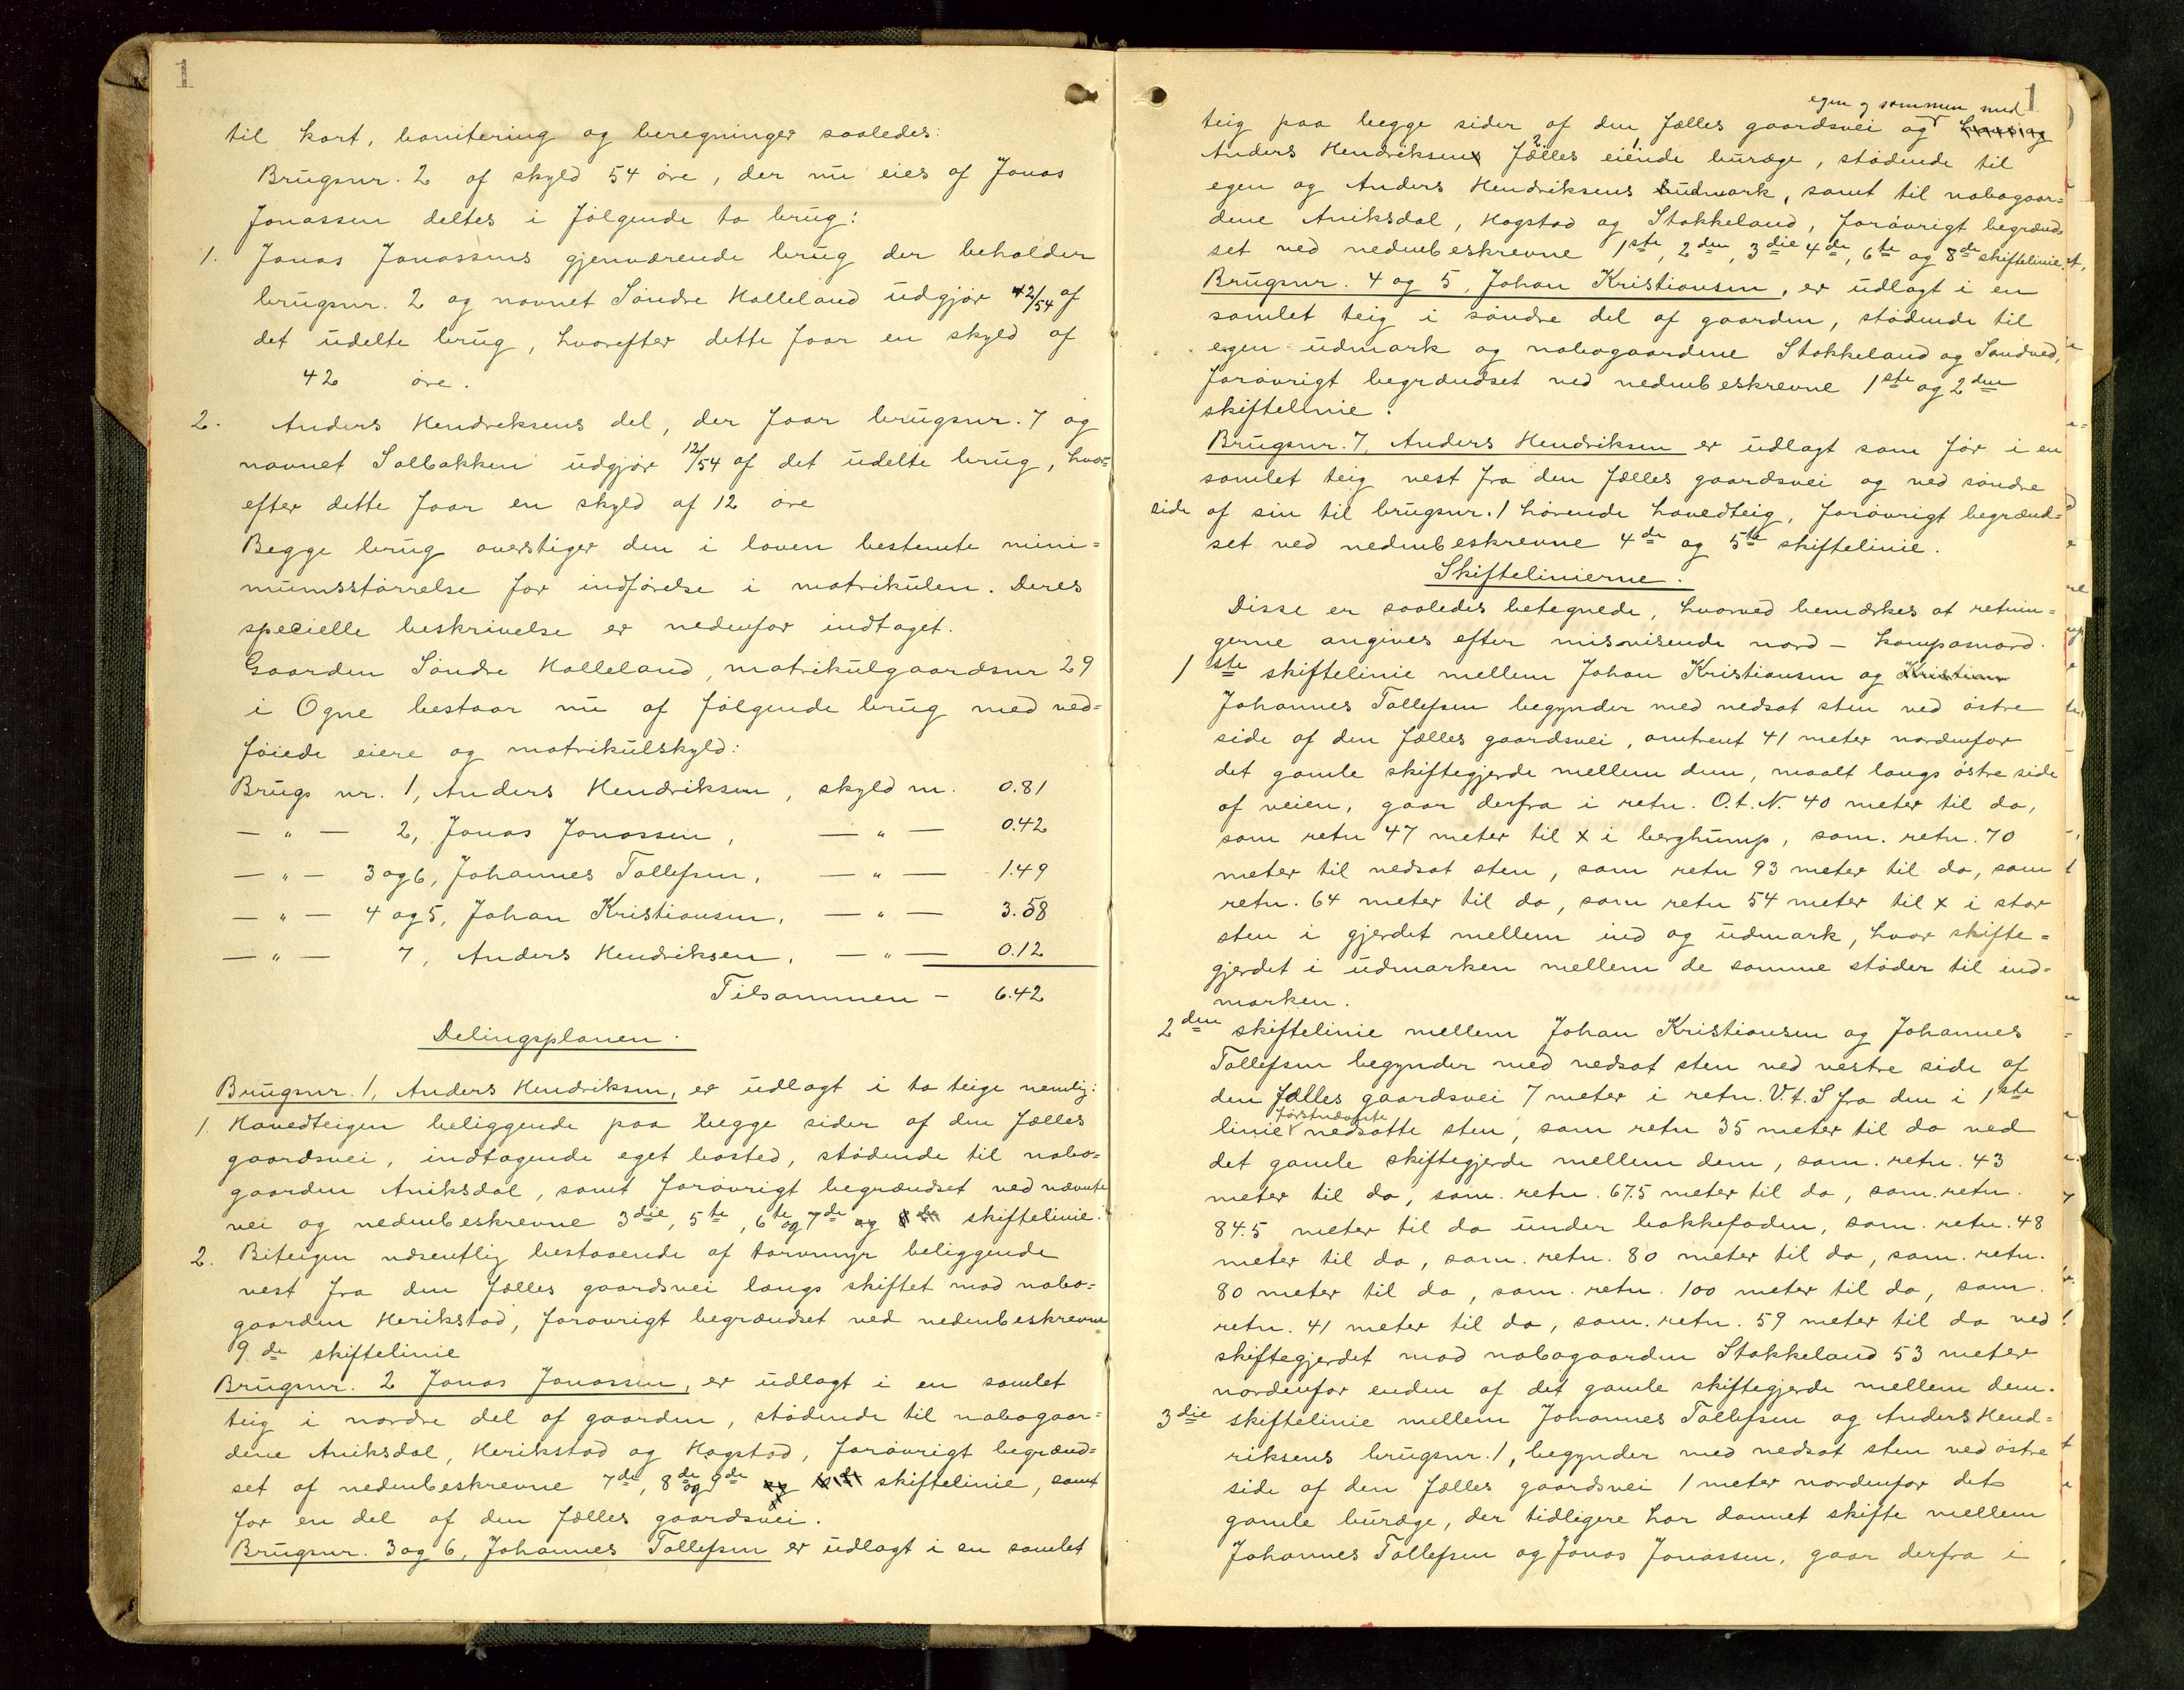 1
til kart, bonitering og beregninger saaledes:
Brugsnr. 2 af skyld 54 øre, der nu eies af Jonas
Jonassen deltes i følgende to brug:
1. Jonas Jonassens gjenværende brug der beholder
brugsnr. 2 og navnet Søndre Halleland udgjør 42/54 af
det udelte brug, hvorefter dette faar en skyld af
42 øre.
2. Anders Hendreksens del, der faar brugsnr. 7 og
navnet Solbakken udgjør 12/54 af det udelte brug, hvor=
efter dette faar en skyld af 12 øre
Begge brug overstiger den i loven bestemte mini=
mumsstørrelse for indførelse i matrikulen. Deres
specielle beskrivelse er nedenfor indtaget.
Gaarden Søndre Halleland, matrikulgaardsnr 29
i Ogne bestaar nu af følgende brug med ved=
føiede eiere og matrikulskyld:
Brugs nr. 1, Anders Hendriksen, skyld m. 0.81
— " — 2, Jonas Jonassen, — " — 0.42
— " — 3 og 6, Johannes Tollefsen, — " — 1.49
— " — 4 og 5, Johan Kristiansen, — " — 3.58
— " — 7, Anders Hendriksen, — " — 0.12
Tilsammen — 6.42
Delingsplanen.
Brugsnr. 1, Anders Hendriksen, er udlagt i to teige nemlig:
1. Hovedteigen beliggende paa begge sider af den fælles
gaardsvei, indtagende eget bosted, stødende til nabo=
gaarden Aniksdal, samt forøvrigt begrændset ved nævnte
vei og nedenbeskrevne 3die, 5te, 6te og 7de og 8de skiftelinie.
2. Biteigen væsentlig bestaaende af torvmyr beliggende
vest fra den fælles gaardsvei langs skiftet mod nabo=
gaarden Herikstad, forøvrigt begrændset ved nedenbeskrevne
9de skiftelinie
Brugsnr. 2 Jonas Jonassen, er udlagt i en samlet
teig i nordre del af gaarden, stødende til nabogaar=
dene Aniksdal, Herikstad og Hagstad, forøvrigt begrænd=
set af nedenbeskrevne 7de, 8de og 9de og skiftelinie, samt
for en del af den fælles gaardsvei.
Brugsnr. 3 og 6, Johannes Tollefsen er udlagt i en samlet
1
egen og sammen med
teig paa begge sider af den fælles gaardsvei og
Anders Hendriksens fælles eiende buræge, stødende til
egen og Anders Hendriksens udmark, samt til nabogaar=
dene Aniksdal, Hagstad og Stokkeland, forøvrigt begrænd=
set ved nedenbeskrevne 1ste, 2den, 3die 4de, 6te og 8de skiftelinie.
Brugsnr. 4 og 5, Johan Kristiansen, er udlagt i en
samlet teig i søndre del af gaarden, stødende til
egen udmark og nabogaardene Stokkeland og Sandved,
forøvrigt begrændset ved nedenbeskrevne 1ste og 2den
skiftelinie.
Brugsnr. 7, Anders Hendriksen er udlagt som før i en
samlet teig vest fra den fælles gaardsvei og ved søndre
side af sin til brugsnr. 1 hørende hovedteig, forøvrigt begrænd=
set ved nedenbeskrevne 4de og 5te skiftelinie.
Skiftelinierne.
Disse er saaledes betegnede, hvorved bemærkes at retnin=
gerne angives efter misvisende nord – kompasnord.
1ste skiftelinie mellem Johan Kristiansen og Kristian
Johannes Tollefsen begynder med nedsat sten ved østre
side af den fælles gaardsvei, omtrent 41 meter nordenfor
det gamle skiftegjerde mellem dem, maalt langs østre side
af veien, gaar derfra i retn. O.t.N. 40 meter til do,
sam retn 47 meter til x i berghump, sam. retn. 70
meter til nedsat sten, sam retn 93 meter til do, sam
retn. 64 meter til do, sam retn 54 meter til x i stor
sten i gjerdet mellem ind og udmark, hvor skifte=
gjerdet i udmarken mellem de samme støder til ind=
marken.
2den skiftelinie mellem Johan Kristiansen og Johannes
Tollefsen begynder med nedsat sten ved vestre side af
den fælles gaardsvei 7 meter i retn. V.t.S fra den i 1ste
førstnævnte
linie nedsatte sten, sam retn 35 meter til do ved
det gamle skiftegjerde mellem dem, sam. retn. 43
meter til do, sam. retn. 67.5 meter til do, sam. retn.
84.5 meter til do under bakkefoden, sam. retn. 48
meter til do, sam. retn. 80 meter til do, sam. retn.
80 meter til do, sam. retn. 100 meter til do, sam.
retn. 41 meter til do, sam. retn. 59 meter til do ved
skiftegjerdet mod nabogaarden Stokkeland 53 meter
nordenfor enden af det gamle skiftegjerde mellem dem.
3die skiftelinie mellem Johannes Tollefsen og Anders Hend=
riksens brugsnr. 1, begynder med nedsat sten ved østre
side af den fælles gaardsvei 1 meter nordenfor det
gamle buræge, der tidligere har dannet skifte mellem
Johannes Tollefsen og Jonas Jonassen, gaar derfra i